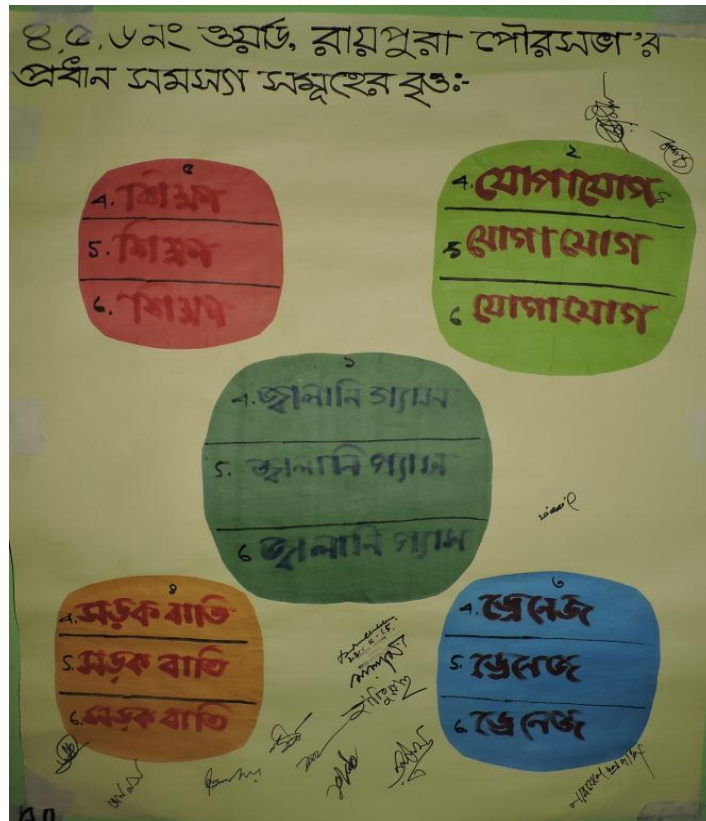 ৪,৫,৬ নং ওয়ার্ড, রায়পুরা পৌরসভা'র
প্রধান সমস্যা সমূহের বৃত্ত:-
৫
4. শিক্ষা
5. শিক্ষা
6. শিক্ষা
২
4. যোগাযোগ
5 যোগাযোগ
6 যোগাযোগ
১
4. জ্বালানি গ্যাস
5. জ্বালানি গ্যাস
6 জ্বালানি গ্যাস
৪
4. সড়ক বাতি
5. সড়ক বাতি
6. সড়ক বাতি
৩
4. ড্রেনেজ
5. ড্রেনেজ
6 ড্রেনেজ